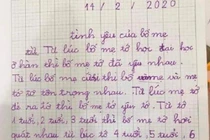 14 / 2 / 2020
tình yêu của bố mẹ
Từ lúc bố mẹ tớ học đại học
ở hàn chế bố mẹ tớ đã yêu nhau.
Từ lúc bố mẹ cưới thì bố và mẹ
tớ tớ tôn trọng nhau. Từ lúc mẹ tớ
đẻ ra tớ thì bố mẹ tớ yêu tớ. Từ tớ
1 tuổi, 2 tuổi, 3 tuổi thì bố mẹ tớ hơi
quát nhau từ lúc tớ 4 tuổi, 5 tuổi, 6